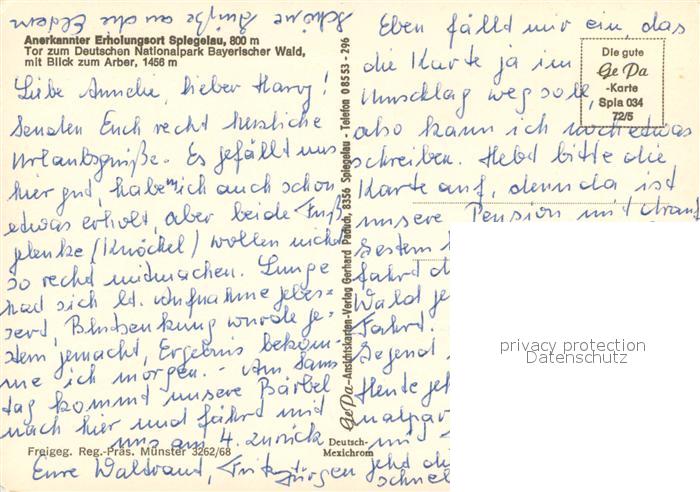 Schöne Grüße an die Eltern
Anerkannter Erholungsort Spiegelau, 800 m
Tor zum Deutschen Nationalpark Bayerischer Wald,
mit Blick zum Arber, 1456 m
Liebe Anneke, lieber Harry!
Senden Euch recht herzliche
Urlaubsgrüße. Es gefällt uns
hier gut, habe mich auch schon
etwas erholt, aber beide Fuß-
gelenke (Knöchel) wollen nicht
so recht mitmachen. Lunge
hat sich lt. Aufnahme gebes-
sert, Blutsenkung wurde ge-
stern gemacht, Ergebnis bekom-
me ich morgen. - Am Sams
tag kommt unsere Bärbel
nach hier und fährt mit
uns am 4. zurück
Freigeg. Reg.-Präs. Münster 3262/68
Eure Waltraud, Fritz
Jürgen
GeDa-Ansichtskarten-Verlag Gerhard Paduch, 8356 Spiegelau - Telefon 0 85 53 - 296
Deutsch-
Mexichrom
Eben fällt mir ein, das
die Karte ja im
Umschlag weg soll,
also kann ich noch etwas
schreiben. Hebt bitte die
Karte auf, denn da ist
unsere Pension mit drauf
Gestern
fährt d
Wald ge
Fahrt.
Gegend
Heute geh
nalpar
mit
jetzt di
schnel
Die gute
GeDa
-Karte
Spla 034
72/5
privacy protection
Datenschutz